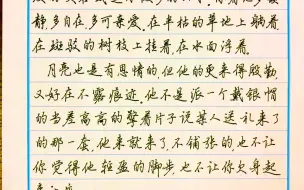 静,多自在,多可亲爱,在半枯的草地上躺着,
在斑驳的树枝上挂着,在水面浮着.
月亮也是有恩情的,但他的更来得殷勤,
又好在不露痕迹.他不是派一个戴银帽
的当差高高的擎着片子说某人送礼来了
的那一套,他来就来了,不铺张的,也不让
你觉得他轻盈的脚步,也不让你欠身起